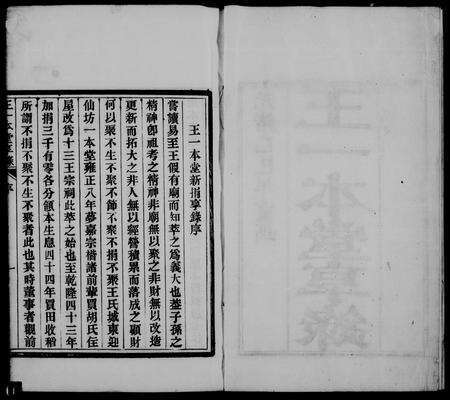 王一本堂新捐享錄序
嘗讀易至王假有廟而知萃之爲義大也蓋子孫之
精神卽祖考之精神非廟無以聚之非財無以改造
更新而拓大之非人無以經營積累而落成之顧財
何以聚不生不聚不節不聚不捐不聚王氏城東迎
仙坊一本堂雍正八年夢嘉宗楷諸前輩買胡氏住
屋改爲十三王宗祠此萃之始也至乾隆四十三年
加捐三千有零各分領本生息四十四年買田收稻
所謂不捐不聚不生不聚者此也其時董事者觀前
王一本堂
序
王一本堂